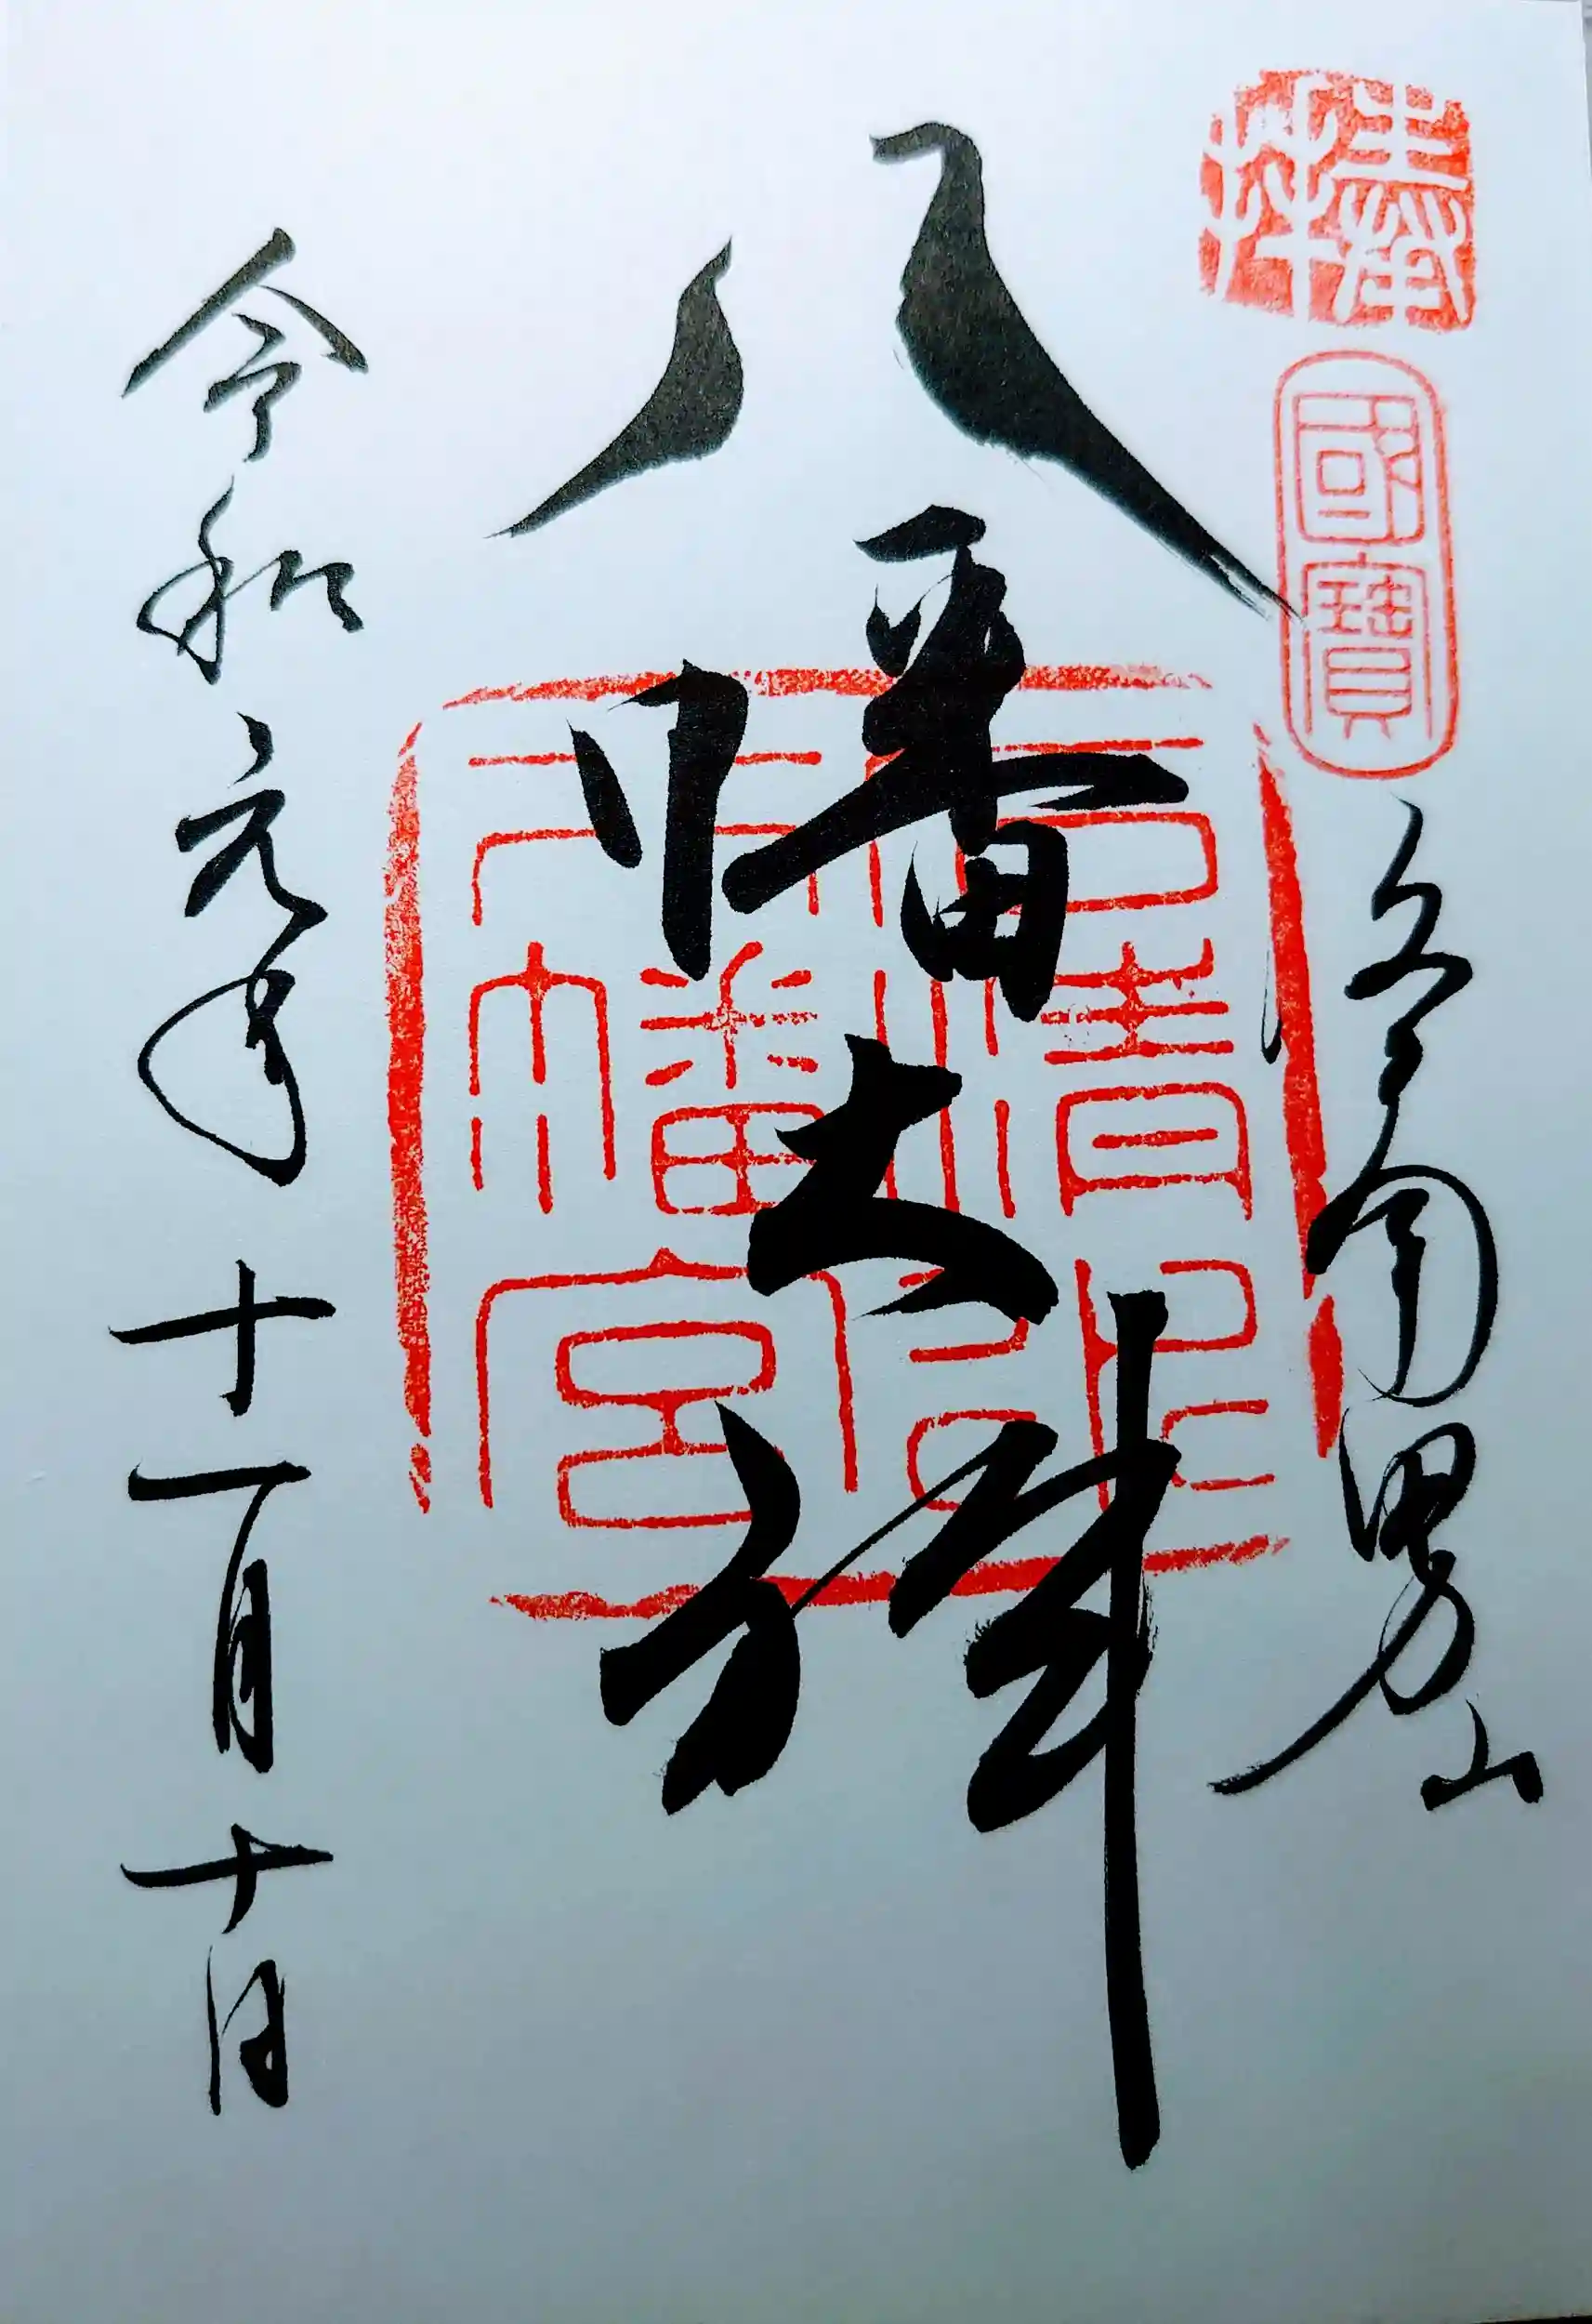 奉拝
國寶
南男山
八幡大神
石清水八幡宮
令和元年十一月十日